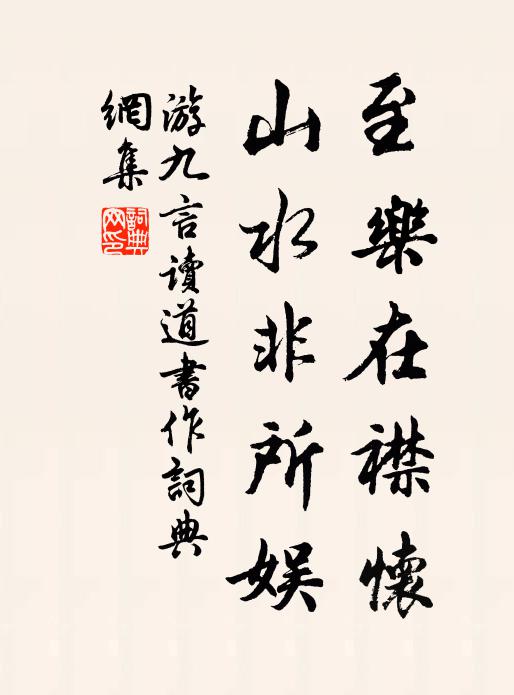 至樂在襟懷
山水非所娱
游九言讀道書作詞典
網集
詞典
网印